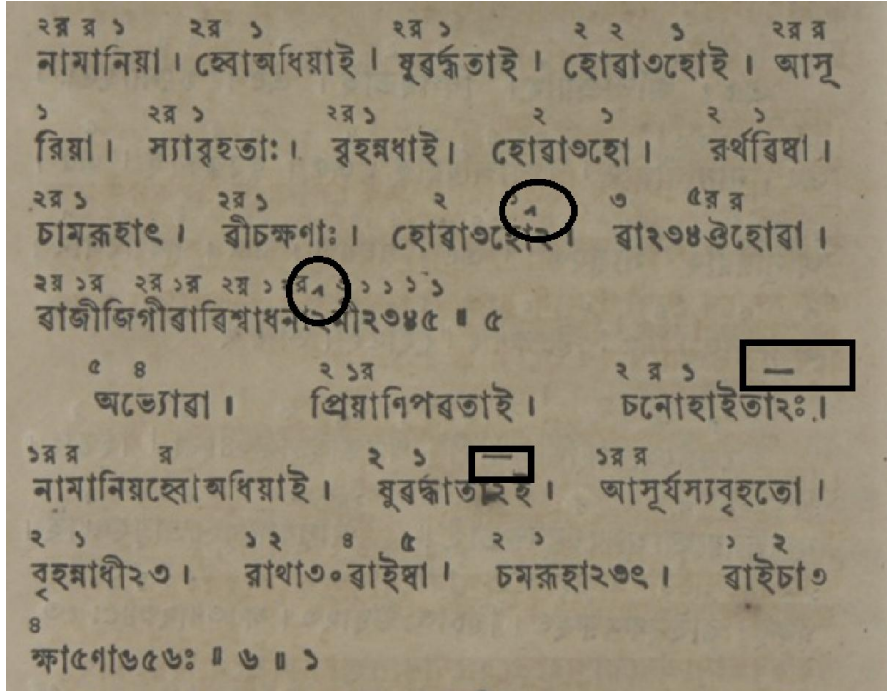 ২ৰ ৰ ১ ২ৰ ১ ২ৰ ১ ২ ২ ১ ২ৰ ৰ
নামানিয়া। হ্বোঅধিয়াই। ষুৱর্দ্ধতাই। হোৱা৩হোই। আসূ
১ ২ৰ ১ ২ৰ ১ ২ ১ ৰ ১
রিয়া। স্যাবৃহতাঃ। বৃহন্নধাই। হোৱা৩হো। রর্থৱিষা।
২ৰ ১ ২ৰ ১ ২ ৩ ৫ৰ ৰ
চামরূহাৎ। ৱীচক্ষণাঃ। হোৱা৩হো২। ৱা২৩৪ঔহোৱা।
২ৰ ১ৰ ২ৰ ১ৰ ২ৰ ১ ১ ১ ১ ১
ৱাজীজিগীৱাৱিশ্বাধনা২নী২৩৪৫॥ ৫
৫ ৪ ২ ১ৰ ২ ৰ ১ —
অভ্যোৱা। প্রিয়াণিপৱতাই। চনোহাইতা২ঃ।
১ৰ ৰ ৰ ২ ১ — ১ৰ ৰ
নামানিয়হ্বোঅধিয়াই। ষুৱর্দ্ধাতা২ই। আসূর্যস্যবৃহতো।
২ ১ ১ ২ ৪ ৫ ২ ১ ১ ২
বৃহন্নাধী২৩। রাথা৩॰ৱাইষা। চমরূহা২৩ৎ। ৱাইচা৩
৪
ক্ষা৫ণা৬৫৬ঃ॥ ৬॥ ১